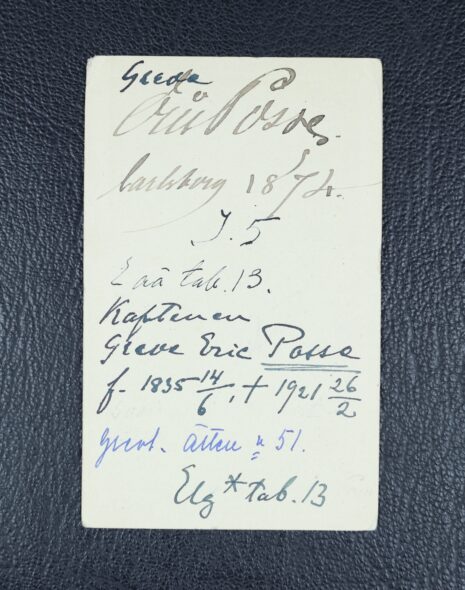 Greve
Eric Posse.
Carlsborg 1874.
J. 5
E aä tab. 13.
Kaptenen
Greve Eric Posse
f. 1835 14/6, † 1921 26/2
Grevl. ätten n 51.
Elg * tab. 13